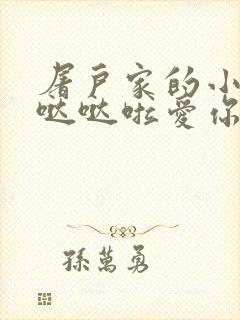 屠户家的小
哒哒啦爱你
孫萬勇